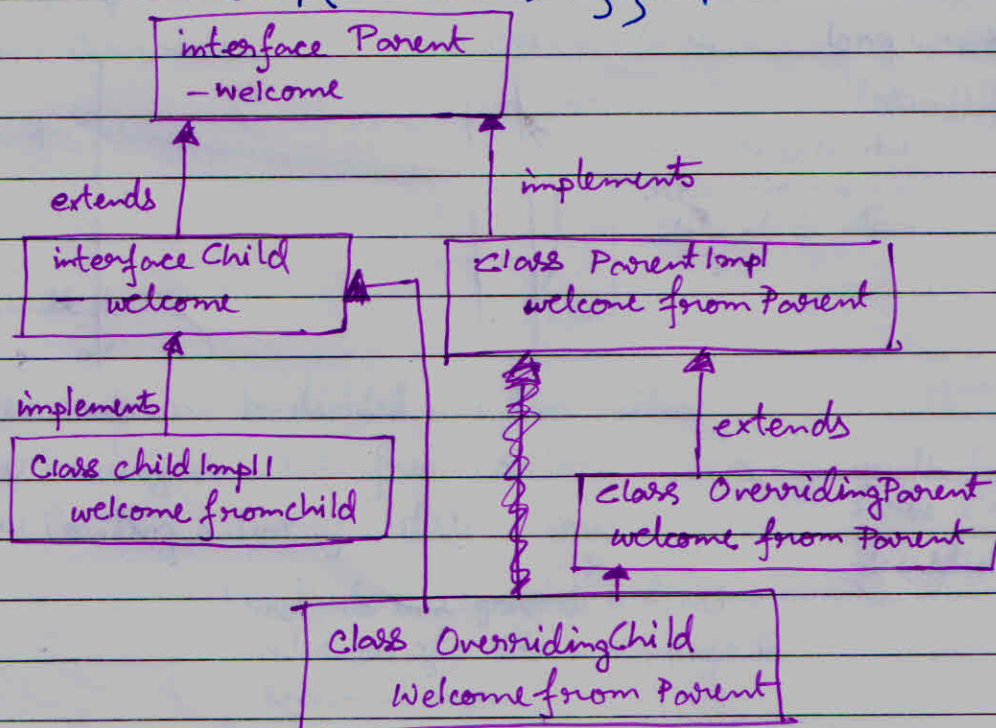 interface Parent
- welcome
extends
implements
interface Child
welcome
class ParentImpl
welcome from Parent
implements
extends
Class childImpl1
welcome fromchild
class OverridingParent
welcome from Parent
class OverridingChild
Welcome from Parent